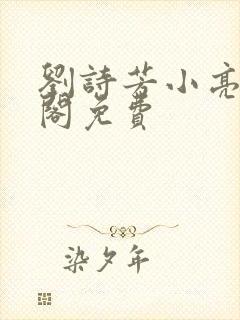 劉詩芳小亮
閣免費
染夕年